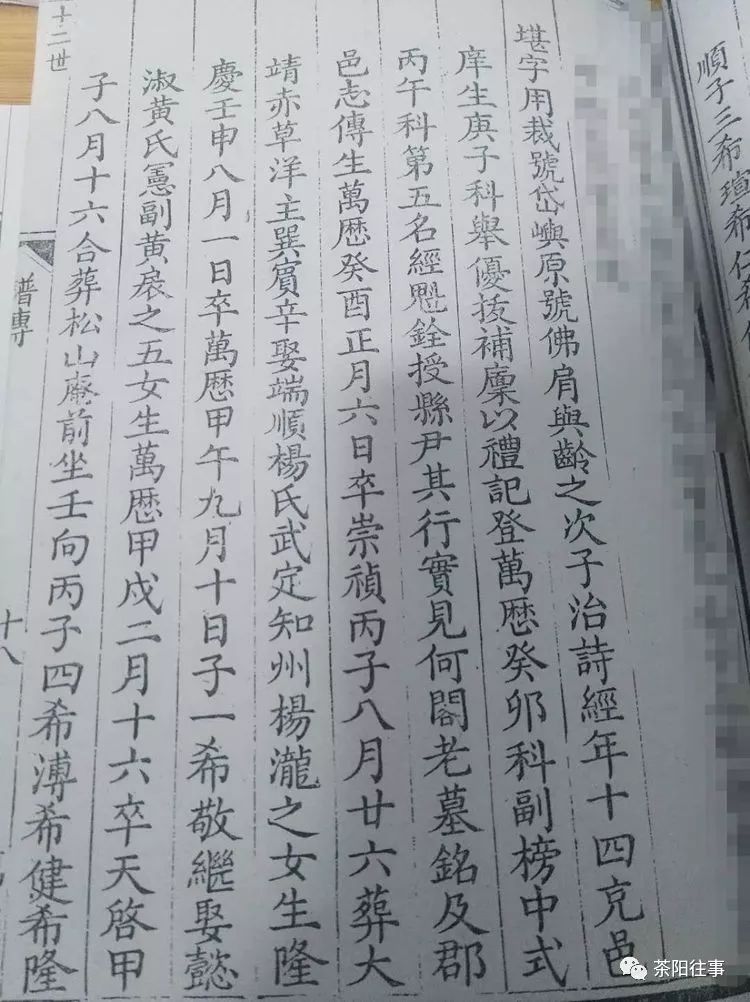 順子三希瑄希仁希
堪字用裁號岱嶼原號佛肩與齡之次子治詩經年十四克邑
庠生庚子科舉優抜補廩以禮記登萬歷癸夘科副榜中式
丙午科第五名經魁銓授縣尹其行實見何閣老墓銘及郡
邑志傳生萬歷癸酉正月六日卒崇禎丙子八月廿六葬大
靖赤草洋主巽賓辛娶端順楊氏武定知州楊瀧之女生隆
慶壬申八月一日卒萬歷甲午九月十日子一希敬繼娶懿
淑黃氏憲副黃扆之五女生萬歷甲戌二月十六卒天啓甲
子八月十六合葬松山庵前坐壬向丙子四希溥希健希隆
十二世
譜專
十八
茶阳往事